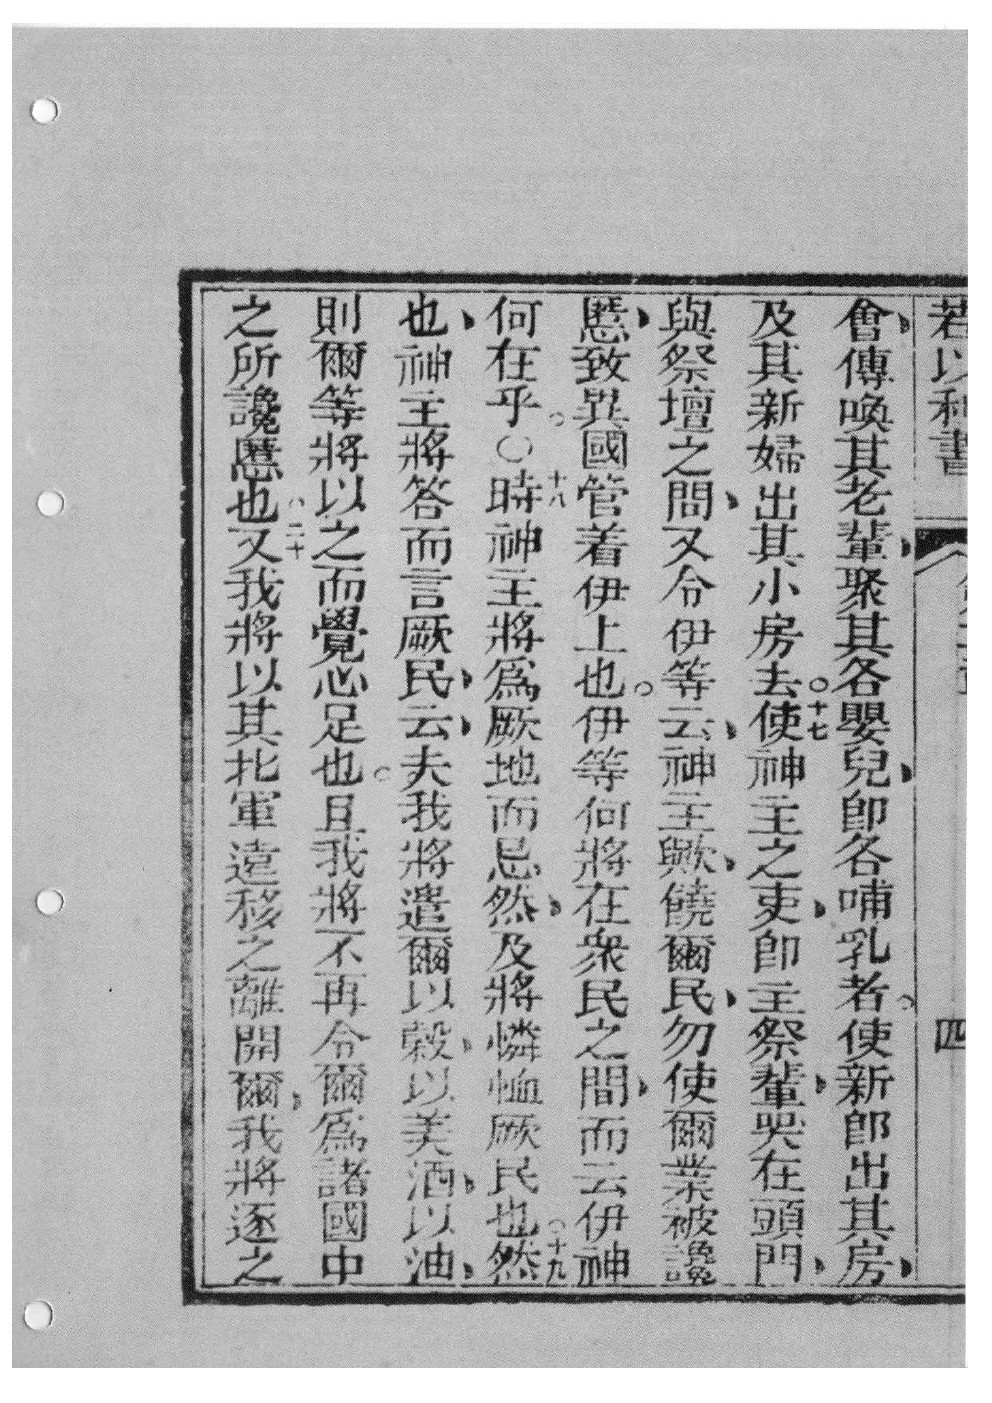 若以利書 四
會傳喚其老輩、聚其各嬰兒、卽各哺乳者。使新郎出其房、
及其新婦出其小房去。十七使神主之吏、卽主祭輩、哭在頭門、
與祭壇之間、又令伊等云、神主歟、饒爾民、勿使爾業被讒
慝、致異國管着伊上也。伊等何將在衆民之間、而云伊神
何在乎。○十八時神主將爲厥地而忌然、及將憐恤厥民也。十九然
也、神主將答而言厥民、云、夫我將遣爾以穀、以美酒、以油、
則爾等將以之而覺心足也。且我將不再令爾爲諸國中
之所讒慝也。二十又我將以其北軍遠移之離開爾、我將逐之